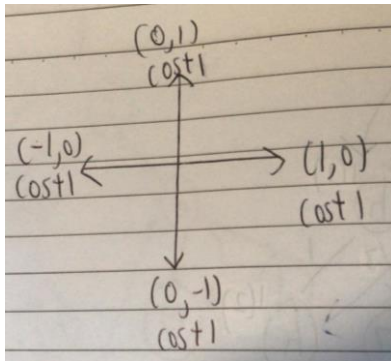 (0,1)
cost 1
(-1,0)
cost 1
(1,0)
cost 1
(0,-1)
cost 1